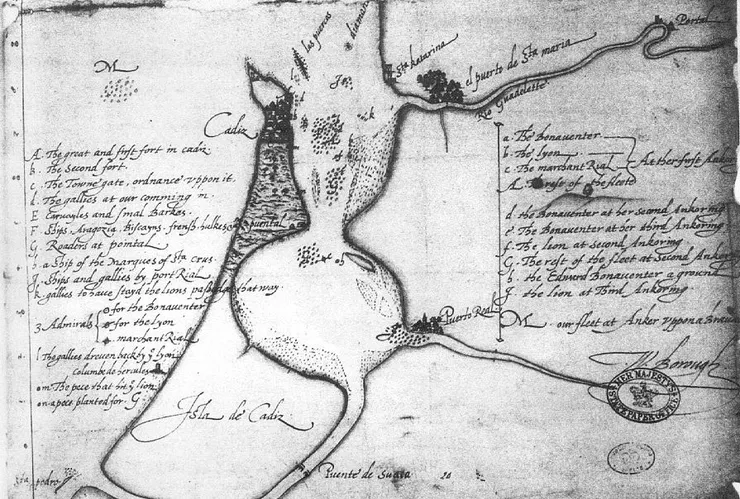 M
las puercas
diamante
Sta katarina
el puerto de Sta maria
Rio Guadelette
Portal
Cadiz
A. The great and first fort in cadiz.
b. The Second fort.
c. The Towne gate, ordnance vppon it.
d. The gallies at our comming in
E Carvoyles and smal Barkes.
F. Ships, Aragozia, Biscayns, frensh, hulkes
G. Roaders at pontal
h. a Ship of the Marques of Sta crus.
J. Ships and gallies by port Rial
k. gallies to have stayd the lions passage that way
3 Admirals
for the Bonaventer
for the Lyon
marchant Rial
l The gallies dreven back by ye lyon
columbe de hercules
m The pece that hit ye lion
n a pece planted for. G.
puental
a. The Bonaventer
b. The lyon
c. The marchant Rial
At her first Ankor
A. The rest of the fleete
d. the Bonaventer at her second Ankoring
e. The Bonaventer at her third Ankoring
f. The lion at second Ankoring
G. The rest of the fleet at Second Anker
h. the Edward Bonaventer a ground
J. the lion at Third Ankoring
M. our fleet at Anker vppon a
Puerto Real
W Borough
HER MAJESTY'S STATE PAPER OFFICE
Isla de Cadiz
Sta pedro
Puente de Suaça
20